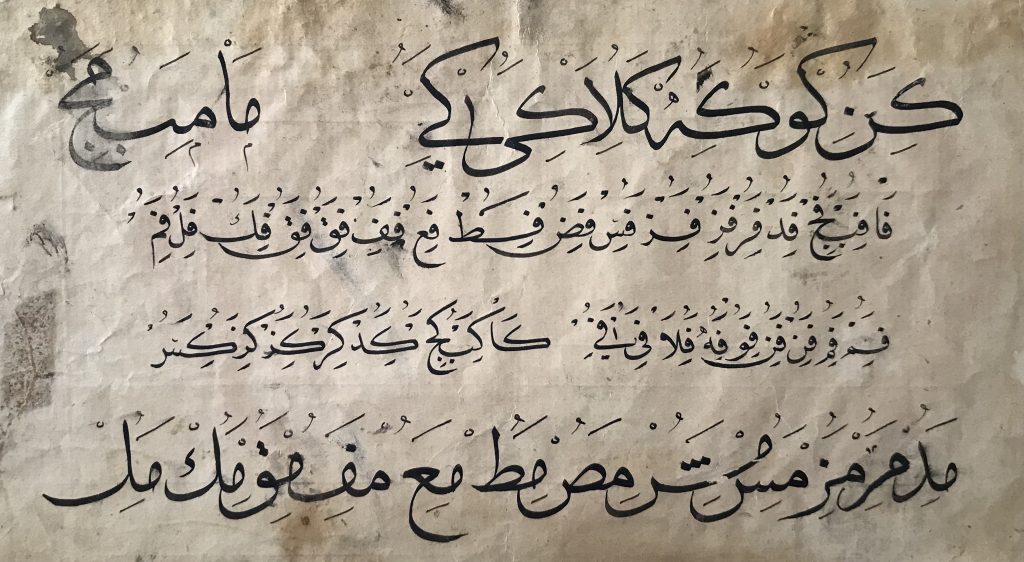 كن كو كه كلا كى كي ما مب مج
فا فب فج فد فر فز فر فس فض فط فع فف فق فق فك فل فم
فم فم فن فن فو فه فلا فى في كا كب كج كد كر كز كر كس
مد مر مز مس مش مص مط مع مف مق مك مل